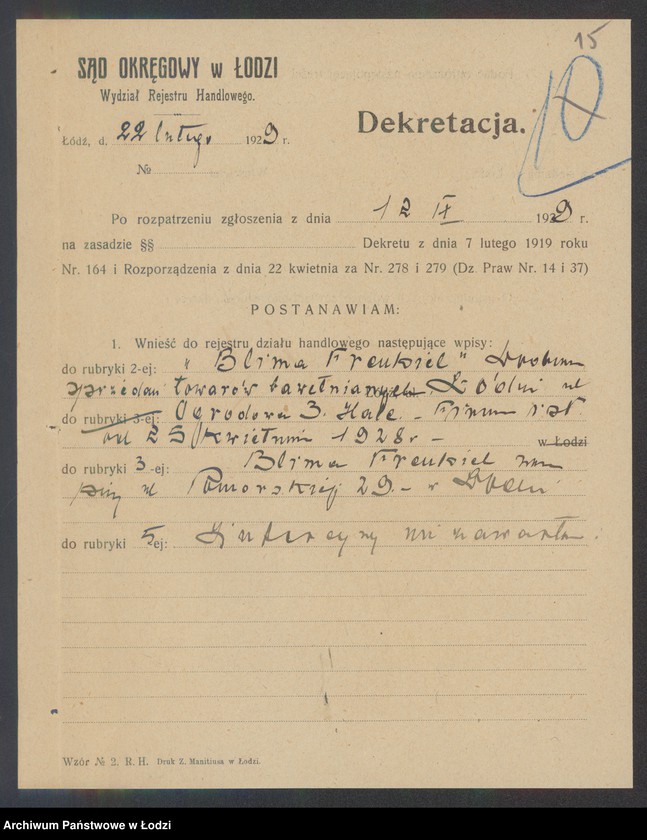 15
10
SĄD OKRĘGOWY w ŁODZI
Wydział Rejestru Handlowego.
Łódź, d. 22 lutego 1929 r.
Dekretacja.
№
Po rozpatrzeniu zgłoszenia z dnia 12 II 1929 r.
na zasadzie §§ Dekretu z dnia 7 lutego 1919 roku
Nr. 164 i Rozporządzenia z dnia 22 kwietnia za Nr. 278 i 279 (Dz. Praw Nr. 14 i 37)
POSTANAWIAM:
1. Wnieść do rejestru działu handlowego następujące wpisy:
do rubryki 2-ej: "Blima Frenkiel"
sprzedaż towarów bawełnianych Łódź ul
do rubryki 3-ej: Ogrodowa 3. Hale. Firma istn.
od 25 kwietnia 1928 r - w Łodzi
do rubryki 3-ej: Blima Frenkiel zam
przy ul Pomorskiej 29. - w Łodzi
do rubryki 5-ej: Intercyzy nie zawarła.
Wzór № 2. R. H. Druk Z. Manitiusa w Łodzi.
Archiwum Państwowe w Łodzi